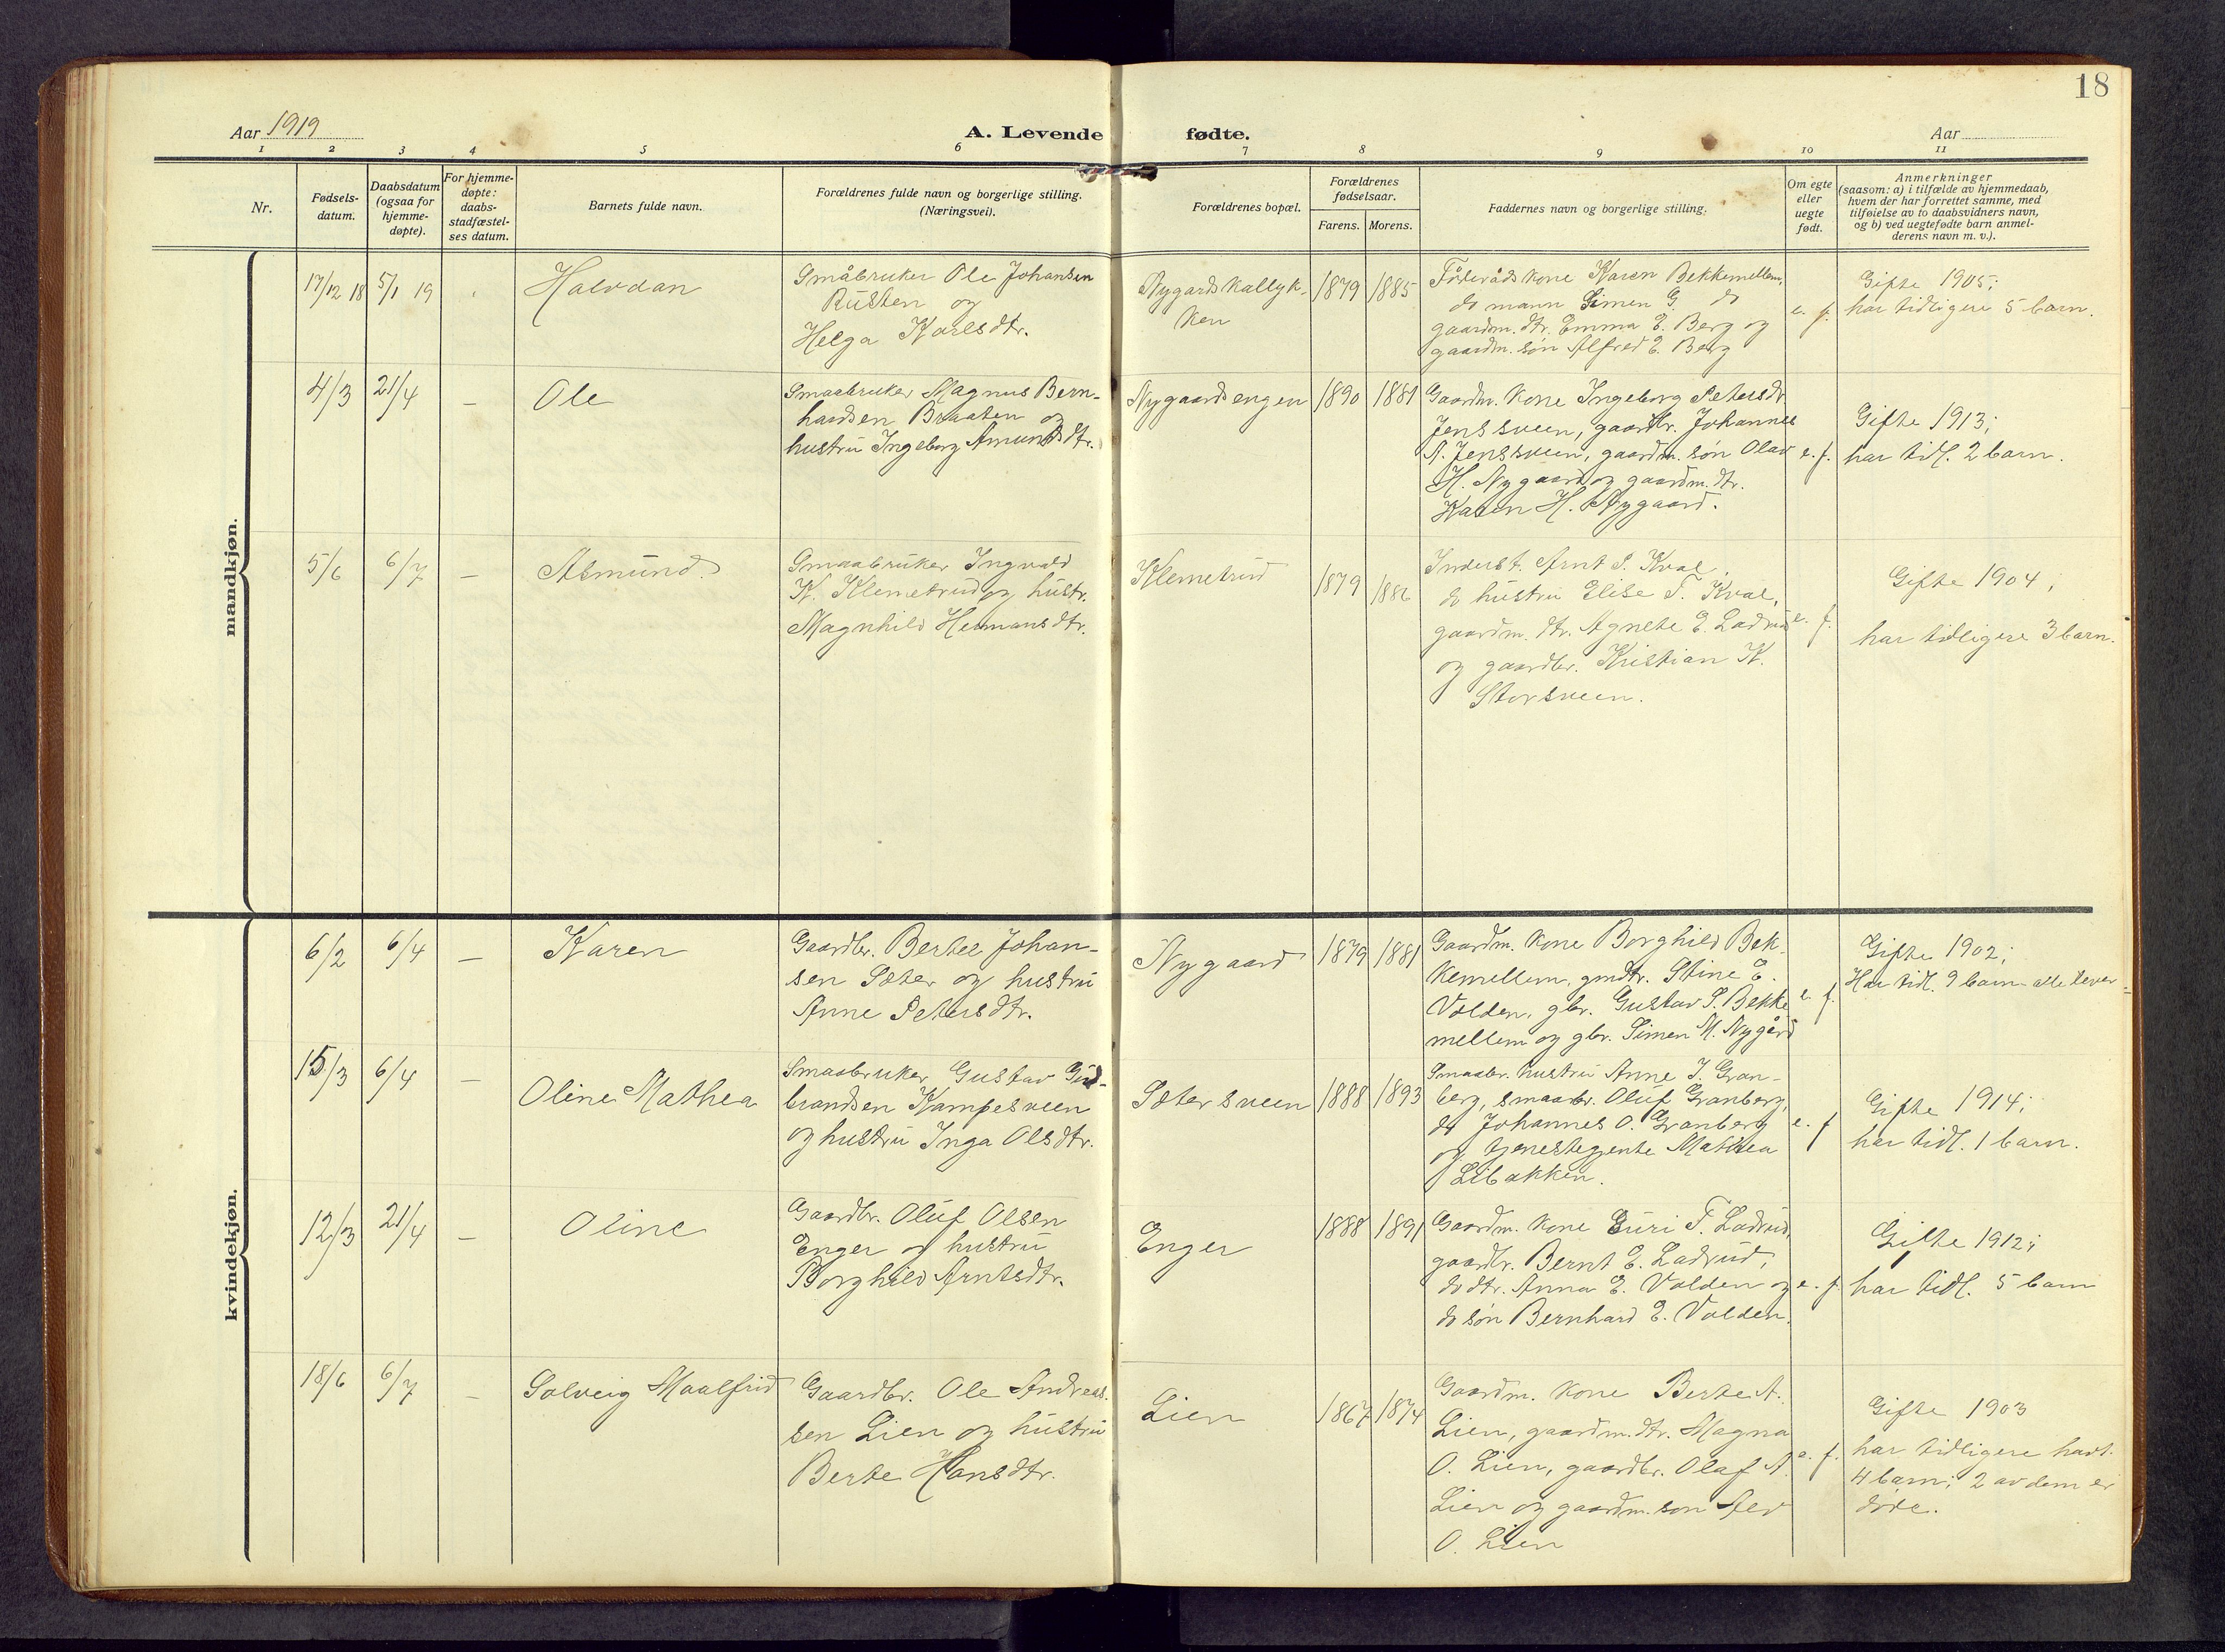 18
Aar 1919
A. Levende fødte.
Aar
1 2 3 4 5 6 7 8 9 10 11
Nr.
Fødsels-
datum.
Daabsdatum
(ogsaa for
hjemme-
døpte).
For hjemme-
døpte:
daabs-
stadfæstel-
ses datum.
Barnets fulde navn.
Forældrenes fulde navn og borgerlige stilling.
(Næringsvei).
Forældrenes bopæl.
Forældrenes
fødselsaar.
Farens. Morens.
Faddernes navn og borgerlige stilling.
Om egte
eller
uegte
født.
Anmerkninger
(saasom: a) i tilfælde av hjemmedaab,
hvem der har forrettet samme, med
tilføielse av to daabsvidners navn,
og b) ved uegtefødte barn anmel-
derens navn m. v.).
mandkjøn.
17/12 18 5/1 19
Halvdan
Småbruker Ole Johansen
Rusten og
Helga Karlsdtr.
Nygardskallyk-
ken
1879 1885
Føderåds kone Karen Bekkemellem,
do mann Simen G. do
gaardm. dtr. Emma E. Berg og
gaardm. søn Alfred E. Berg
e. f.
Gifte 1905;
har tidligere 5 barn.
4/3 21/4 –
Ole
Smaabruker Magnus Bern-
hardsen Braaten og
hustru Ingeborg Amundsdtr.
Nygaardsengen
1890 1881
Gaardm. kone Ingeborg Petersdr
Jenssveen, gaardbr. Johannes
A. Jenssveen, gaardm. søn Olav
H. Nygaard og gaardm. dtr.
Karen H. Nygaard.
e. f.
Gifte 1913;
har tidl. 2 barn.
5/6 6/7 –
Asmund.
Smaabruker Ingvald
K. Klemetrud og hustr.
Magnhild Hermansdtr.
Klemetrud
1879 1886
Inderst. Arnt S. Kval,
do hustru Elise T. Kval,
gaardm. dtr. Agnete E. Ladrud
og gaardbr. Kristian K.
Storsveen.
e. f.
Gifte 1904;
har tidligere 3 barn.
kvindekjøn.
6/2 6/4 –
Karen
Gaardbr. Bertel Johan-
sen Sæter og hustru
Anne Petersdtr.
Nygaard
1879 1881
Gaardm. kone Borghild Bek-
kemellem, gmdtr. Stine E.
Volden, gbr. Gustav S. Bekke
mellem og gbr. Simen M. Nygård
e. f.
Gifte 1902;
Har tidl. 9 barn – alle lever
15/3 6/4 –
Oline Mathea
Smaabruker Gustav Gud-
brandsen Kampesveen
og hustru Inga Olsdtr.
Sætersveen
1888 1893
Smaabr. hustru Anne J. Gran-
berg, smaabr. Oluf Granberg,
do Johannes O. Granberg
og tjenestegjente Mathea
Libakken.
e. f
Gifte 1914;
har tidl. 1 barn.
12/3 21/4 –
Oline
Gaardbr. Oluf Olsen
Enger og hustru
Borghild Arntsdtr.
Enger
1888 1891
Gaardm. kone Guri T. Ladrud,
gaardbr. Bernt E. Ladrud,
do dtr. Anna E. Volden og
do søn Bernhard E. Volden.
e. f.
Gifte 1912;
har tidl. 5 barn
18/6 6/7 –
Solveig Maalfrid
Gaardbr. Ole Andreas.
sen Lien og hustru
Berte Hansdtr.
Lien
1867 1874
Gaardm. kone Berte A.
Lien, gaardm. dtr. Magna
O. Lien, gaardbr. Olaf A.
Lien og gaardm. søn
O. Lien
e. f.
Gifte 1903
har tidligere havt
4 barn; 2 av dem er
døde.